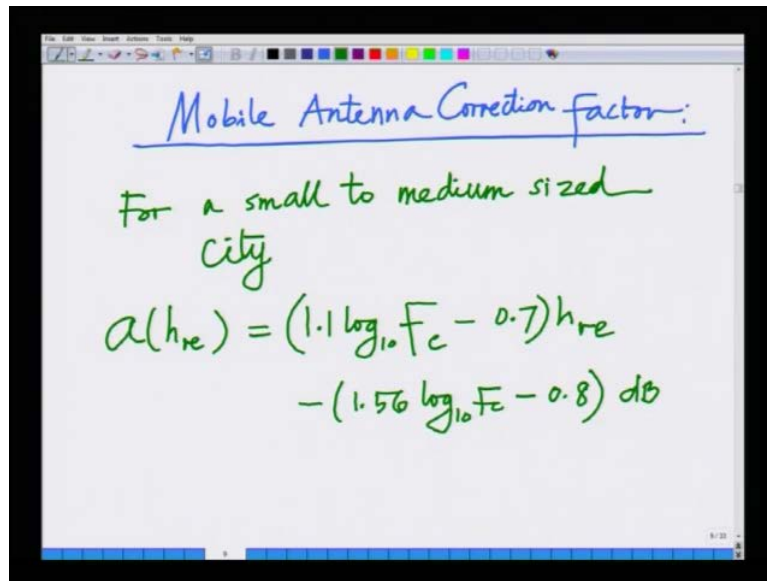 File Edit View Insert Actions Tools Help
Mobile Antenna Correction Factor:
For a small to medium sized
city
a(hre) = (1.1 log10 Fc - 0.7) hre
- (1.56 log10 Fc - 0.8) dB
9